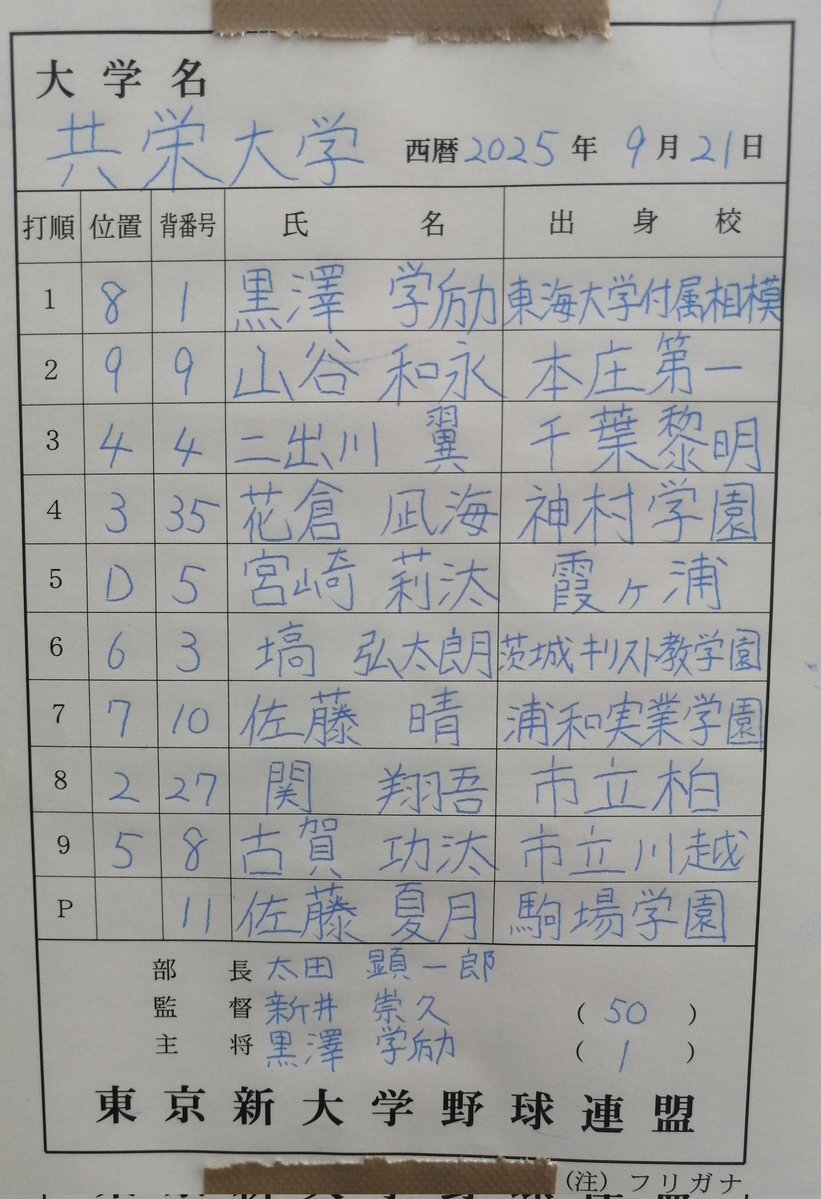 大学名
共栄大学 西暦2025年 9月21日
打順 位置 背番号 氏名 出身校
1 8 1 黒澤 学励 東海大学付属相模
2 9 9 山谷 和永 本庄第一
3 4 4 二出川 翼 千葉黎明
4 3 35 花倉 凪海 神村学園
5 D 5 宮崎 莉汰 霞ヶ浦
6 6 3 塙 弘太朗 茨城キリスト教学園
7 7 10 佐藤 晴 浦和実業学園
8 2 27 関 翔吾 市立柏
9 5 8 古賀 功汰 市立川越
P 11 佐藤 夏月 駒場学園
部長 太田 顕一郎
監督 新井 崇久 (50)
主将 黒澤 学励 (1)
東京新大学野球連盟
(注)フリガナ